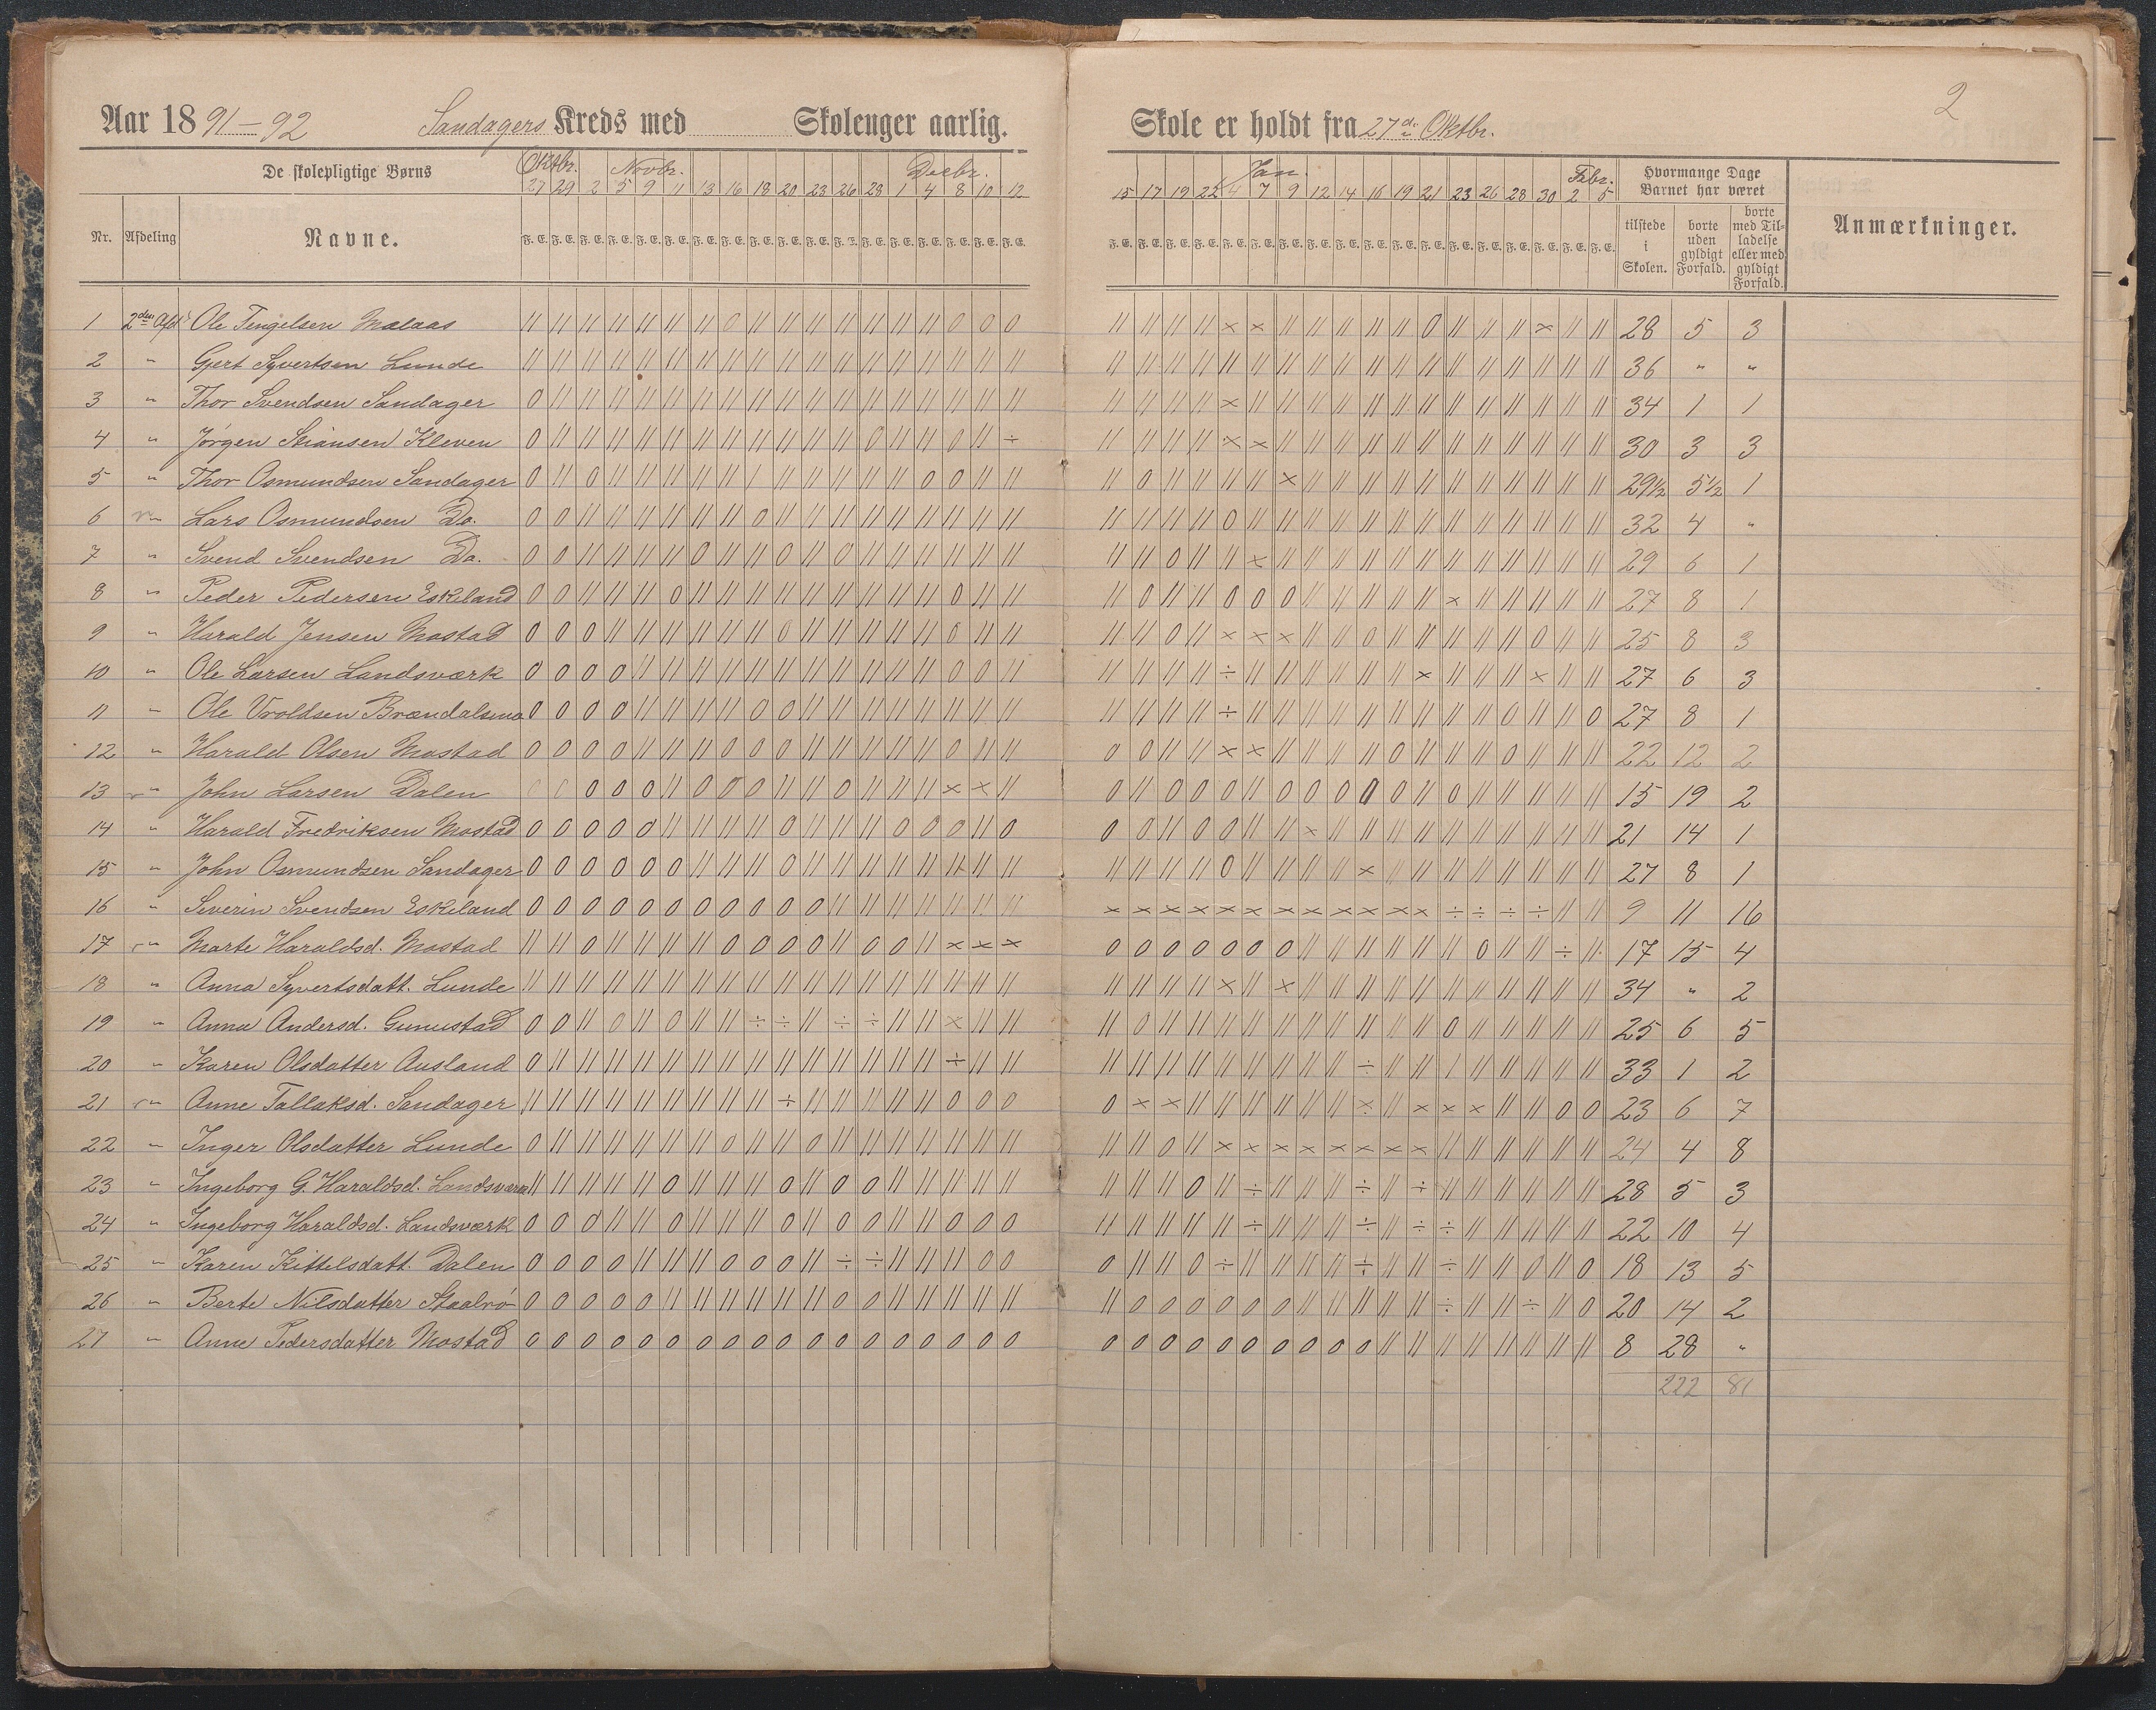 2
Aar 1891-92 Sandagers Kreds med Skolenger aarlig. Skole er holdt fra 27de Oktbr.
De skolepligtige Børns Oktbr. Novbr. Decbr. Jan. Febr. Hvormange Dage Barnet har været
27 29 2 5 9 11 13 16 18 20 23 26 28 1 4 8 10 12 15 17 19 22 4 7 9 12 14 16 19 21 23 26 28 30 2 5
Nr. Afdeling Navne. F. E. F. E. F. E. F. E. F. E. F. E. F. E. F. E. F. E. F. E. F. E. F. E. F. E. F. E. F. E. F. E. F. E. F. E. F. E. F. E. F. E. F. E. F. E. F. E. F. E. F. E. F. E. F. E. F. E. F. E. F. E. F. E. F. E. F. E. F. E. F. E. tilstede i Skolen. borte uden gyldigt Forfald. borte med Tilladelse eller med gyldigt Forfald. Anmærkninger.
1 2den Afd. Ole Tengelsen Molaas 28 5 3
2 " Gjert Syvertsen Lunde 36 " "
3 " Thor Svendsen Sandager 34 1 1
4 " Jørgen Stiansen Kleven 30 3 3
5 " Thor Osmundsen Sandager 29½ 5½ 1
6 " Lars Osmundsen Do. 32 4 "
7 " Svend Svendsen Do. 29 6 1
8 " Peder Pedersen Eskeland 27 8 1
9 " Harald Jensen Mostad 25 8 3
10 " Ole Larsen Landsværk 27 6 3
11 " Ole Vroldsen Brændalsmo 27 8 1
12 " Harald Olsen Mostad 22 12 2
13 " John Larsen Dalen 15 19 2
14 " Harald Fredriksen Mostad 21 14 1
15 " John Osmundsen Sandager 27 8 1
16 " Severin Svendsen Eskeland 9 11 16
17 " Marte Haraldsd. Mostad 17 15 4
18 " Anna Syvertsdatt. Lunde 34 " 2
19 " Anna Andersd. Gunustad 25 6 5
20 " Karen Olsdatter Ausland 33 1 2
21 " Anne Tallaksd. Sandager 23 6 7
22 " Inger Olsdatter Lunde 24 4 8
23 " Ingeborg G. Haraldsd. Landsværk 28 5 3
24 " Ingeborg Haraldsd. Landsværk 22 10 4
25 " Karen Kittelsdatt. Dalen 18 13 5
26 " Berte Nilsdatter Staalrø 20 14 2
27 " Anne Pedersdatter Mostad 8 28 "
222 81